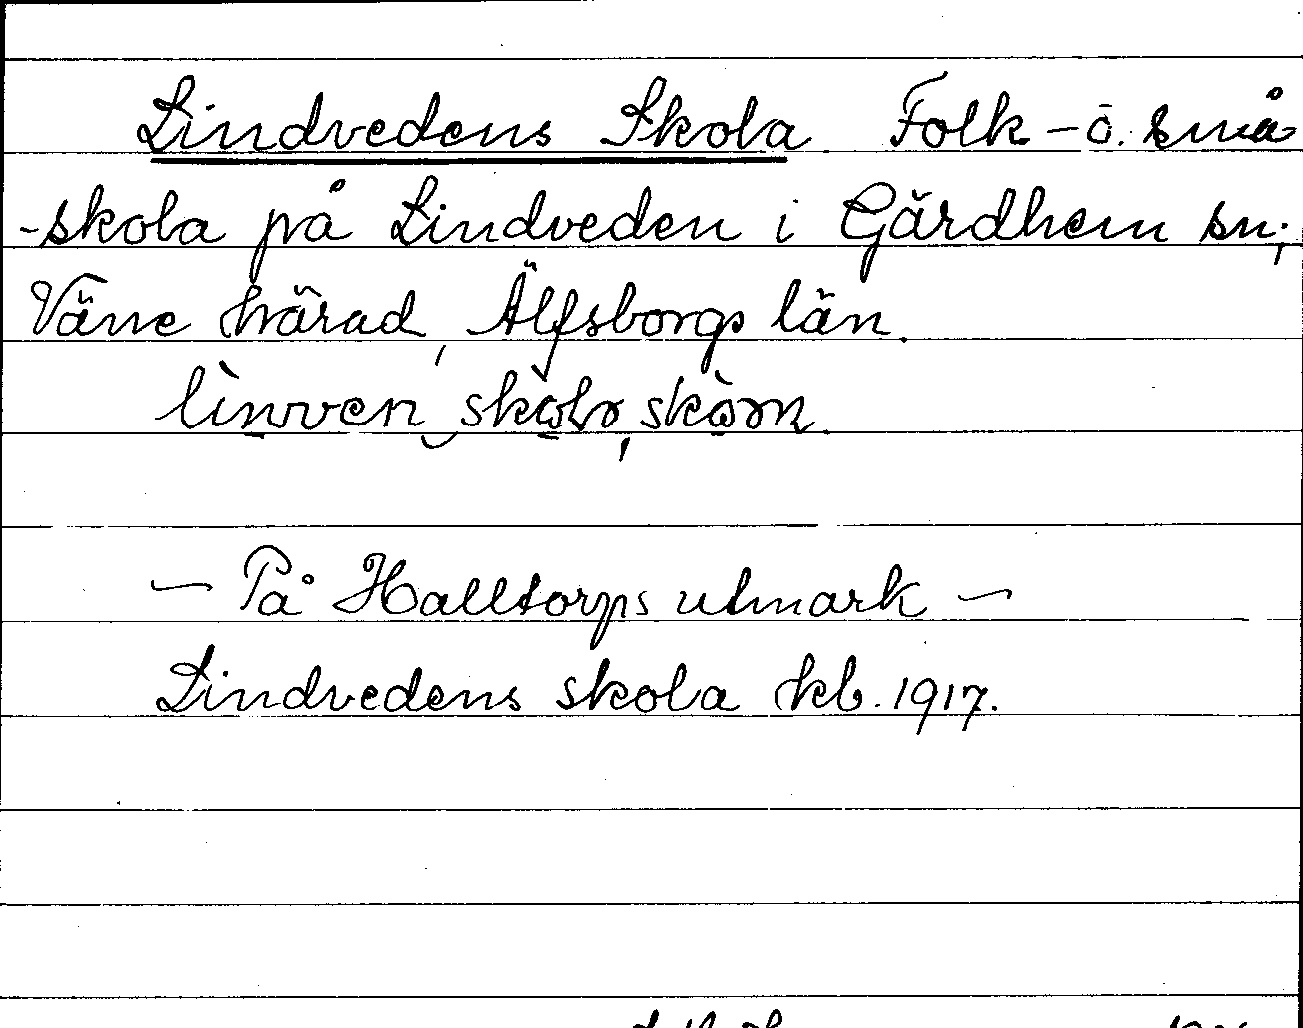 Lindvedens Skola. Folk- o. små
-skola på Lindveden i Gärdhem sn;
Väne härad, Älfsborgs län.
- På Halltorps utmark -
Lindvedens skola kb. 1917.